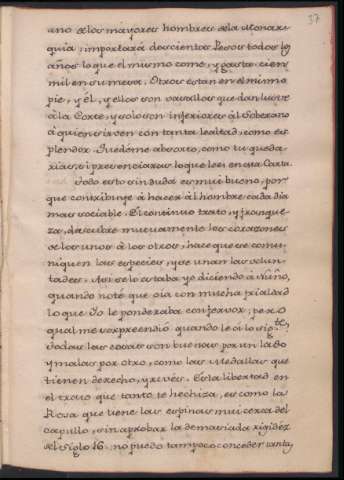 37
uno de los mayores hombres de la Monar-
quia; importará doscientas Pesos todos los
años lo que el mismo come, y gasta cien
mil en su mesa. Otros estan en el mismo
pie, y él, y ellos son vasallos que dan lustre
à la Corte, y solo son inferiores àl Soberano
à quien sirven con tanta lealtad, como es-
plendor. Quedéme absorto, como tu queda-
rias, si presenciáras lo que lees en esta Carta.
Todo esto sin duda es mui bueno, por-
que contribuye à hacer àl hombre cada dia
mas sociable. El continuo trato, y franque-
za, descubre mutuamente los corazones
de los unos à los otros, hace que se comu-
niquen las especies, y se unan las volun-
tades. Asi se lo estaba yo diciendo à Nuño,
quando noté que oia con mucha frialdad
lo que Yo le ponderaba con fervor; pero
qual me sorpreendió quando le oì lo sig.te
todas las cosas son buenas por un lado
y malas por otro, como las Medallas que
tienen derecho, y revés. Esta libertad en
el trato que tanto te hechiza, es como la
Rosa que tiene las espinas mui cerca del
capullo, sin aprobar la demasiada rigidéz
del Siglo 16. no puedo tampoco conceder tanta